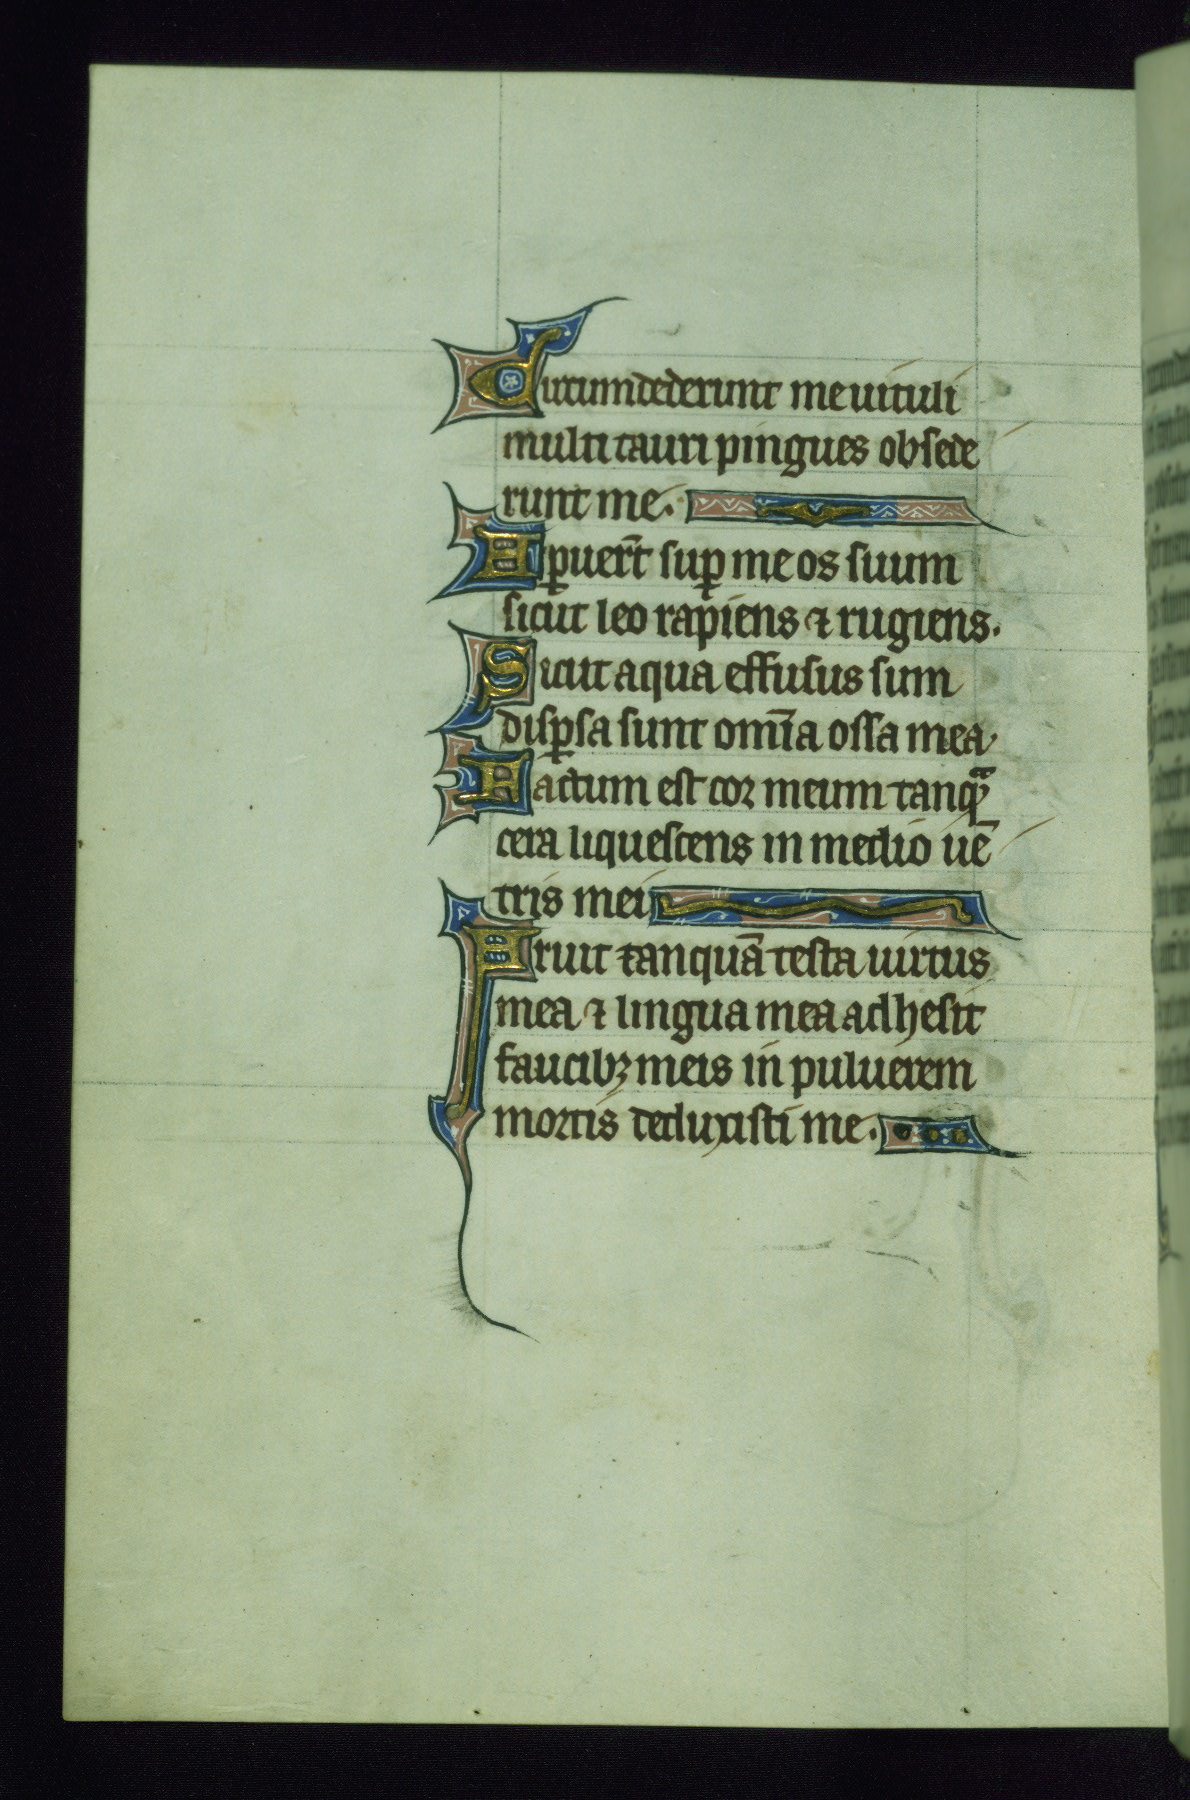 Circumdederunt me uituli
multi tauri pingues obsede
runt me.
Aꝑuer̄t suꝑ me os suum
sicut leo rapiens ⁊ rugiens.
Sicut aqua effusus sum
disꝑsa sunt om̄ia ossa mea.
Factum est cor meum tanqᷓ
cera liquescens in medio uē
tris mei
Aruit tanquā testa uirtus
mea ⁊ lingua mea adhesit
faucibꝫ meis in puluerem
mortis deduxisti me.